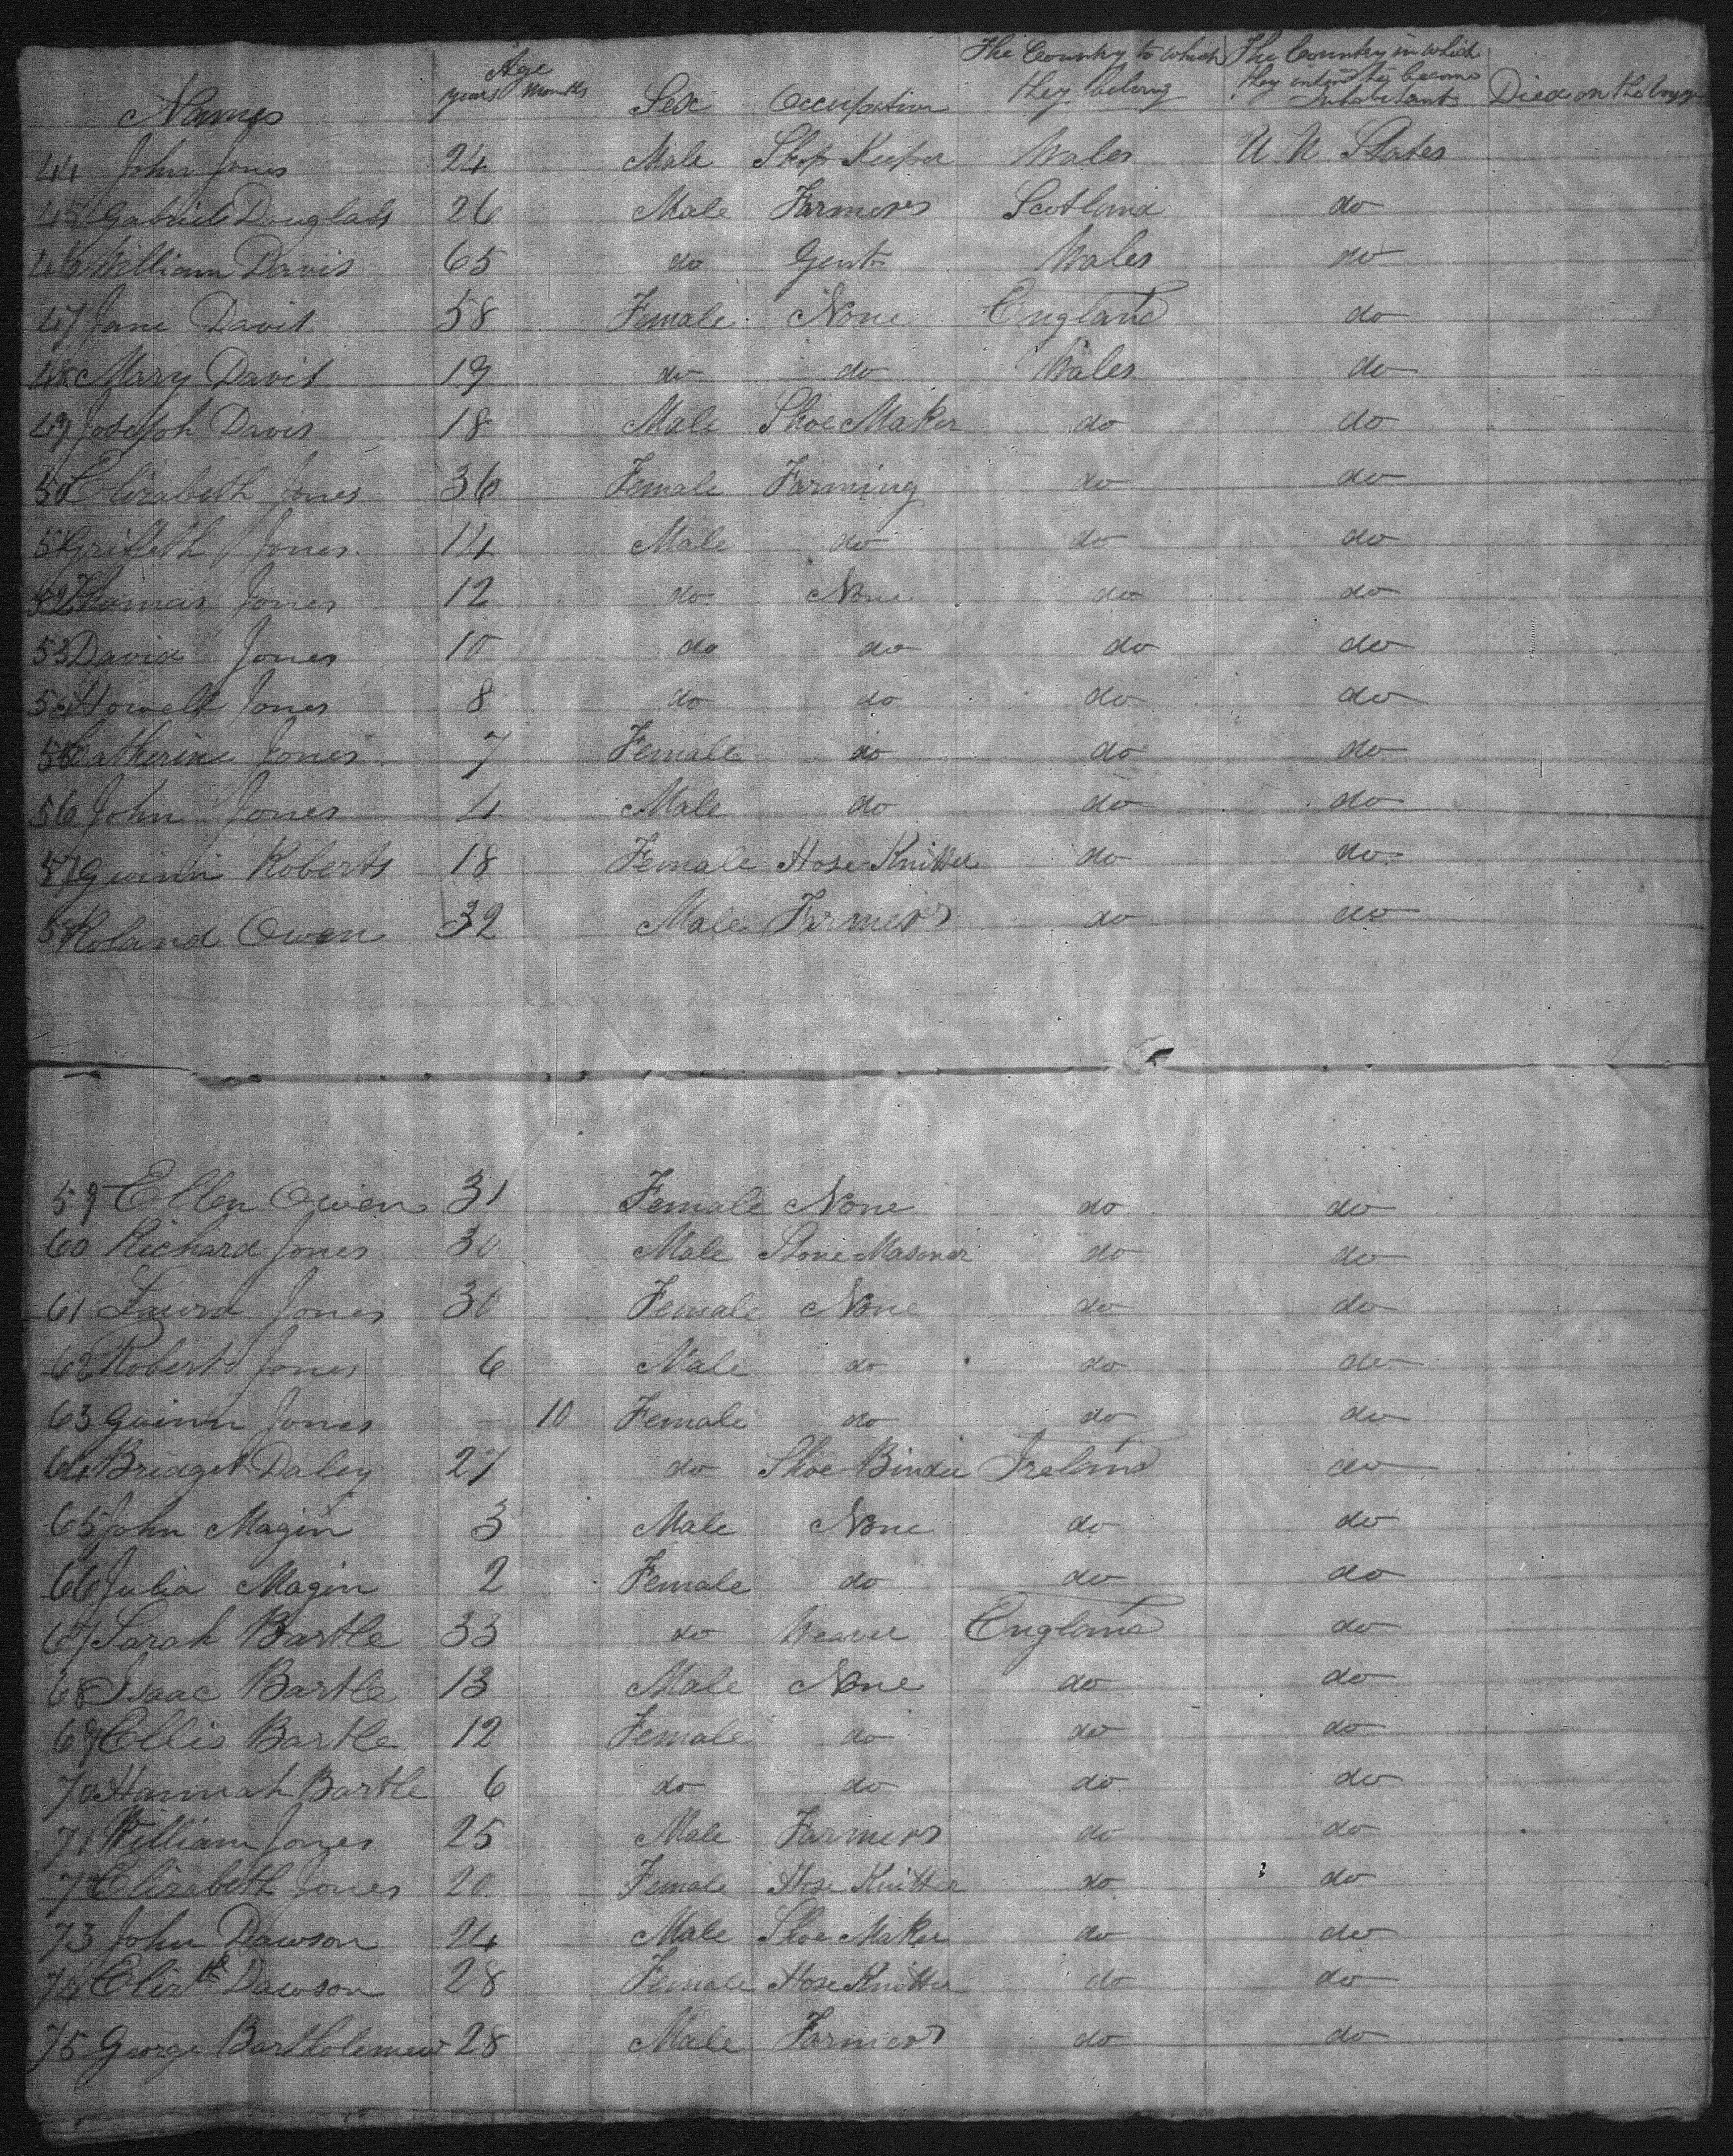 Names Age years months Sex Occupation The Country to which they belong The Country in which they intend to become Inhabitants Died on the Voyage
44 John Jones 24 Male Shop Keeper Wales U N States
45 Gabriel Douglass 26 Male Farmers Scotland do
46 William Davis 65 do Gent Wales do
47 Jane Davis 58 Female None England do
48 Mary Davis 19 do do Wales do
49 Joseph Davis 18 Male Shoe Maker do do
50 Elizabeth Jones 36 Female Farming do do
51 Griffeth Jones 14 Male do do do
52 Thomas Jones 12 do None do do
53 David Jones 10 do do do do
54 Howell Jones 8 do do do do
55 Catherine Jones 7 Female do do do
56 John Jones 4 Male do do do
57 Gwinn Roberts 18 Female Hose Knitter do do
58 Roland Owen 32 Male Farmers do do
59 Ellen Owen 31 Female None do do
60 Richard Jones 30 Male Stone Masoner do do
61 Laura Jones 30 Female None do do
62 Robert Jones 6 Male do do do
63 Gwinn Jones — 10 Female do do do
64 Bridget Daley 27 do Shoe Binder Ireland do
65 John Magin 3 Male None do do
66 Julia Magin 2 Female do do do
67 Sarah Bartle 33 do Weaver England do
68 Isaac Bartle 13 Male None do do
69 Ellis Bartle 12 Female do do do
70 Hannah Bartle 6 do do do do
71 William Jones 25 Male Farmers do do
72 Elizabeth Jones 20 Female Hose Knitter do do
73 John Dawson 24 Male Shoe Maker do do
74 Elizth Dawson 28 Female Hose Knitter do do
75 George Bartholemew 28 Male Farmers do do